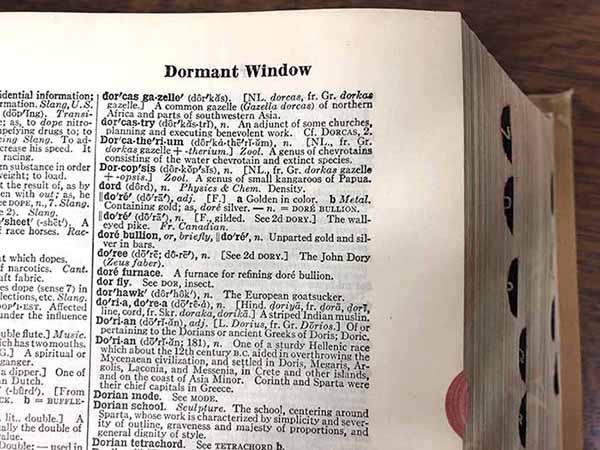 Dormant Window
idential information;
rmation. Slang, U.S.
Transi-
; as, to dope nitro-
upefying drugs to; to
cing Slang. To ad-
crease his speed. It
racing.
n substance in order
weight; to load.
t the result of, as by
en with out; as, he
see DOPE, n., 7. Slang.
e 2). Slang.
'sheet' (-shēt'). A
of race horses. Rac-
which dopes.
f narcotics. Cant.
aft fabric.
es dope (sense 7) in
lections, etc. Slang.
Affected
under the influence
uble flute.] Music.
which has two mouths.
G.] A spiritual or
ganger.
a dipper.] One of
an Dutch.
(-bûrd'). [From
CK. b = BUFFLE-
lit., double.] A
ally the double of
value.
Double; — used in
dor'cas ga-zelle' (dôr'kăs). [NL. dorcas, fr. Gr. dorkas
gazelle.] A common gazelle (Gazella dorcas) of northern
Africa and parts of southwestern Asia.
dor'cas-try (dôr'kăs-trĭ), n. An adjunct of some churches,
planning and executing benevolent work. Cf. DORCAS, 2.
Dor'ca-the'ri-um (dôr'kȧ-thē'rĭ-ŭm), n. [NL., fr. Gr.
dorkas gazelle + -therium.] Zool. A genus of chevrotains
consisting of the water chevrotain and extinct species.
Dor-cop'sis (dŏr-kŏp'sĭs), n. [NL., fr. Gr. dorkas gazelle
+ -opsis.] Zool. A genus of small kangaroos of Papua.
dord (dôrd), n. Physics & Chem. Density.
‖do'ré' (dô'rā'), adj. [F.] a Golden in color. b Metal.
Containing gold; as, doré silver. — n. = DORÉ BULLION.
‖do'ré' (dô'rā'), n. [F., gilded. See 2d DORY.] The wall-
eyed pike. Fr. Canadian.
doré bullion, or, briefly, ‖do'ré', n. Unparted gold and sil-
ver in bars.
do'ree (dō'rē; dô-rē'), n. [See 2d DORY.] The John Dory
(Zeus faber).
doré furnace. A furnace for refining doré bullion.
dor fly. See DOR, insect.
dor'hawk' (dôr'hôk'), n. The European goatsucker.
do'ri-a, do're-a (dō'rē-ȧ), n. [Hind. doriyā, fr. ḍorā, ḍorī,
line, cord, fr. Skr. doraka, dorikā.] A striped Indian muslin.
Do'ri-an (dō'rĭ-ăn), adj. [L. Dorius, fr. Gr. Dōrios.] Of or
pertaining to the Dorians or ancient Greeks of Doris; Doric.
Do'ri-an (dō'rĭ-ăn; 181), n. One of a sturdy Hellenic race
which about the 12th century B.C. aided in overthrowing the
Mycenaean civilization, and settled in Doris, Megaris, Ar-
golis, Laconia, and Messenia, in Crete and other islands,
and on the coast of Asia Minor. Corinth and Sparta were
their chief capitals in Greece.
Dorian mode. See MODE.
Dorian school. Sculpture. The school, centering around
Sparta, whose work is characterized by simplicity and sever-
ity of outline, graveness and majesty of proportions, and
general dignity of style.
Dorian tetrachord. See TETRACHORD b.